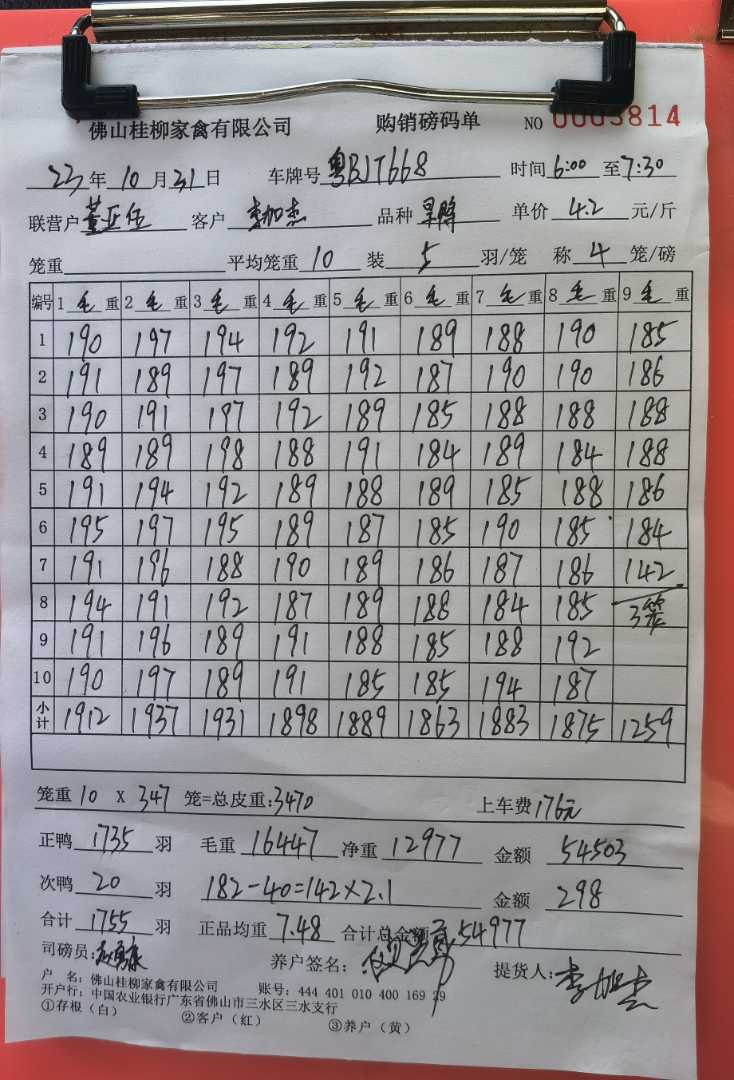 佛山桂柳家禽有限公司 购销磅码单 NO 0003814
23年10月31日 车牌号粤BJT668 时间6:00至7:30
联营户 客户李加杰 品种 单价4.2元/斤
笼重 平均笼重10 装5羽/笼 称4笼/磅
编号 1毛重 2毛重 3毛重 4毛重 5毛重 6毛重 7毛重 8毛重 9毛重
1 190 197 194 192 191 189 188 190 185
2 191 189 197 189 192 187 190 190 186
3 190 191 197 192 189 185 188 188 188
4 189 189 198 188 191 184 189 184 188
5 191 194 192 189 188 189 185 188 186
6 195 197 195 189 187 185 190 185 184
7 191 196 188 190 189 186 187 186 142
8 194 191 192 187 189 188 184 185 3笼
9 191 196 189 191 188 185 188 192
10 190 197 189 191 185 185 194 187
小计 1912 1937 1931 1898 1889 1863 1883 1875 1259
笼重10 X 347 笼=总皮重:3470 上车费176元
正鸭1735羽 毛重16447 净重12977 金额54503
次鸭20羽 182-40=142×2.1 金额298
合计1755羽 正品均重7.48 合计总金额54977
司磅员: 养户签名: 提货人:李加杰
户 名:佛山桂柳家禽有限公司 账号:444 401 010 400 169 29
开户行:中国农业银行广东省佛山市三水区三水支行
①存根(白) ②客户(红) ③养户(黄)